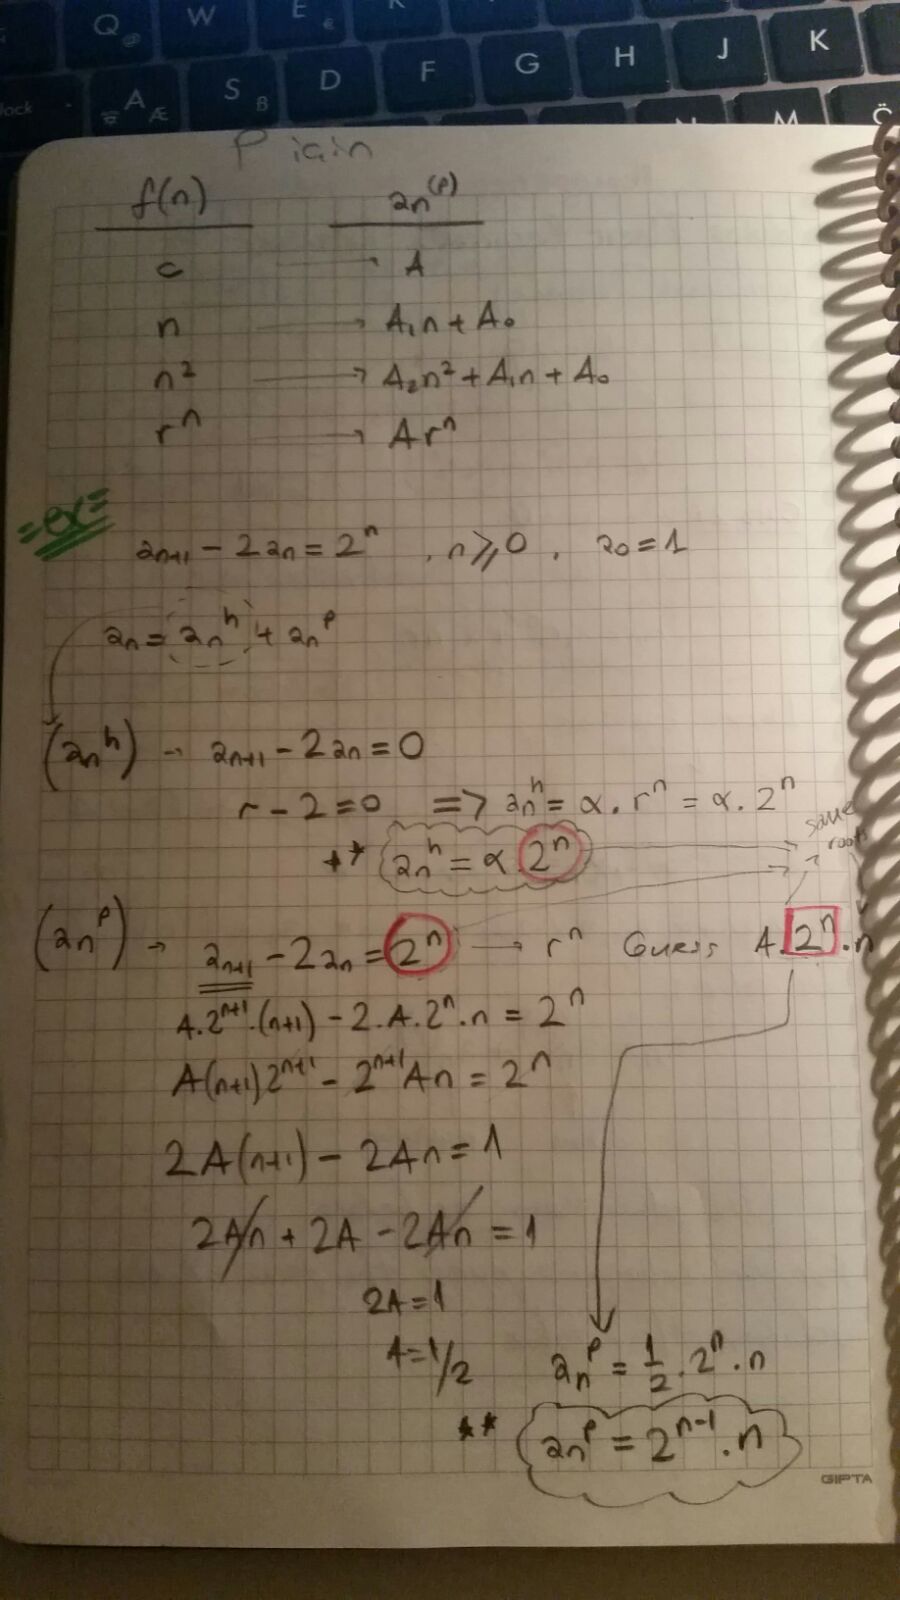 Q @ W E € R
lock A Æ S B D F G H J K
N M Ö
f(n) an^(p)
c → A
n → A₁n + A₀
n² → A₂n² + A₁n + A₀
rⁿ → Arⁿ
=ex=
aₙ₊₁ - 2aₙ = 2ⁿ , n ≥ 0 , a₀ = 1
aₙ = aₙʰ + aₙᵖ
(aₙʰ) → aₙ₊₁ - 2aₙ = 0
r - 2 = 0 => aₙʰ = α . rⁿ = α . 2ⁿ
same roots
** aₙʰ = α . 2ⁿ
(aₙᵖ) → aₙ₊₁ - 2aₙ = 2ⁿ → rⁿ Guess A . 2ⁿ . n
A . 2ⁿ⁺¹ . (n+1) - 2 . A . 2ⁿ . n = 2ⁿ
A(n+1)2ⁿ⁺¹ - 2ⁿ⁺¹An = 2ⁿ
2A(n+1) - 2An = 1
2An + 2A - 2An = 1
2A = 1
A = 1/2 aₙᵖ = 1/2 . 2ⁿ . n
** aₙᵖ = 2ⁿ⁻¹ . n
GIPTA